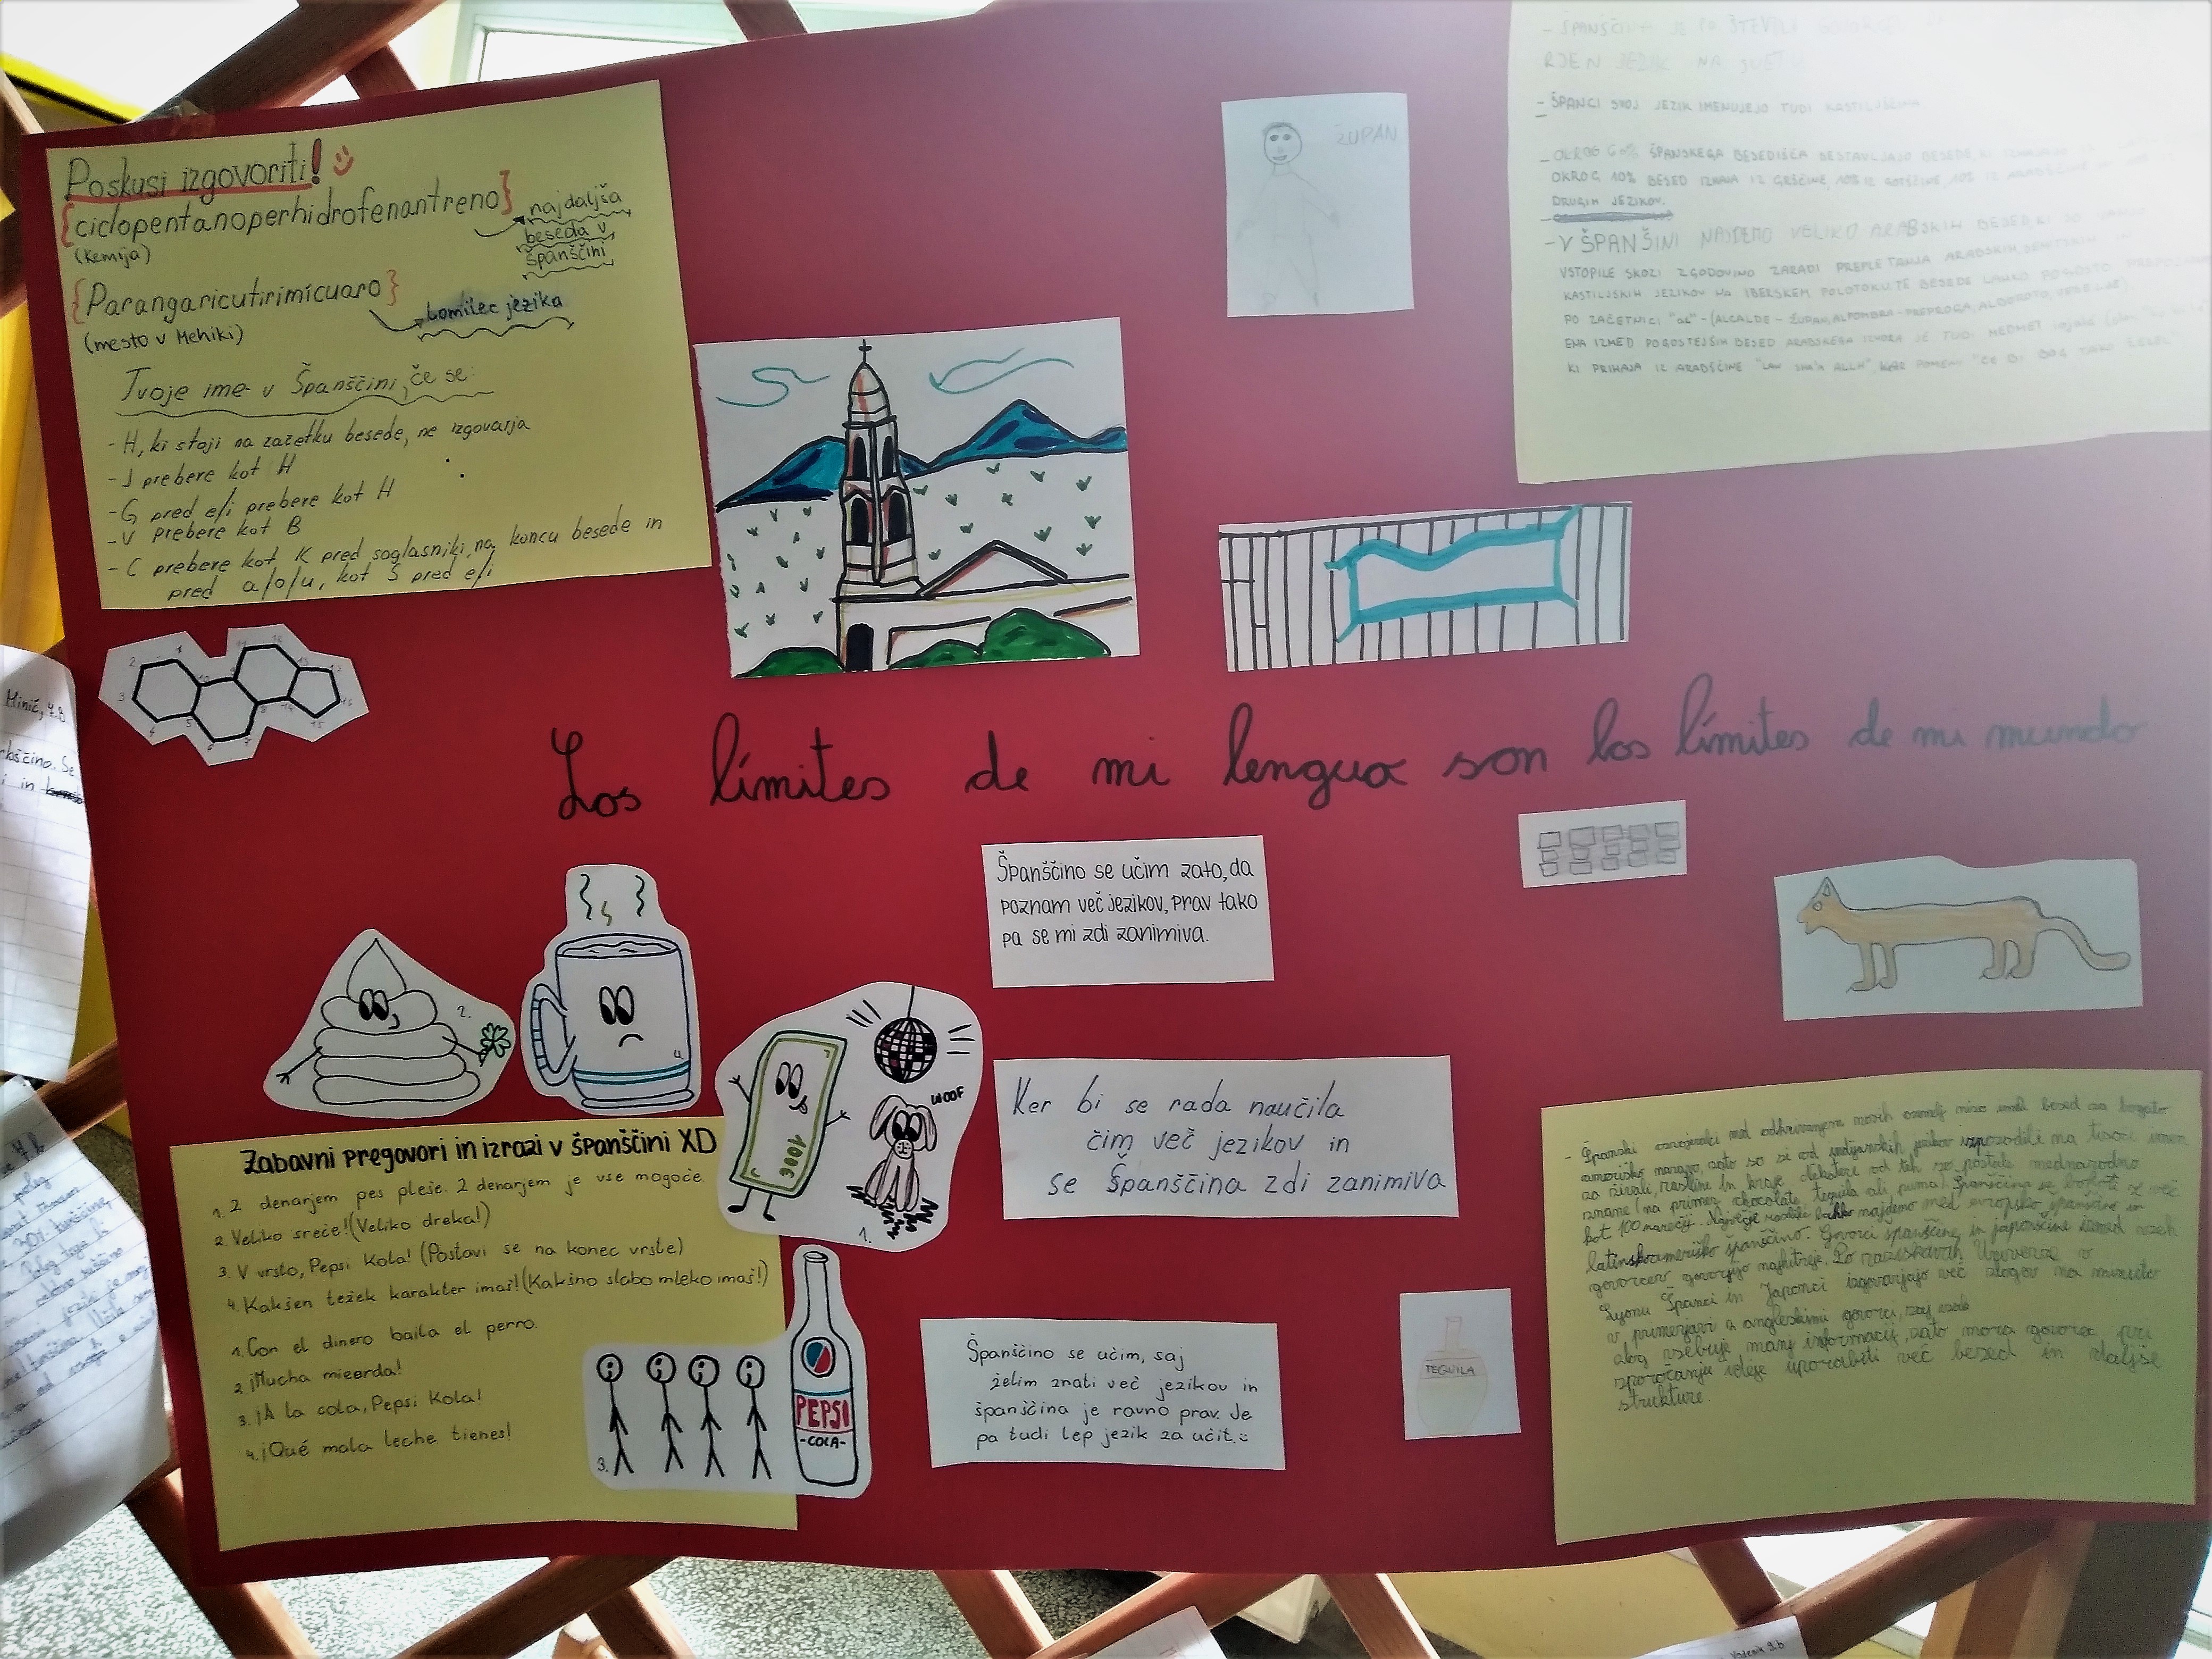 Poskusi izgovoriti!
{ciclopentanoperhidrofenantreno}
(kemija)
najdaljša
beseda v
španščini
{Parangaricutirimícuaro}
(mesto v Mehiki)
Lomilec jezika
Tvoje ime v Španščini, če se:
- H, ki stoji na začetku besede, ne izgovarja
- J prebere kot H
- G pred e/i prebere kot H
- V prebere kot B
- C prebere kot K pred soglasniki, na koncu besede in
pred a/o/u, kot S pred e/i
ŽUPAN
- ŠPANCI SVOJ JEZIK IMENUJEJO TUDI
ŠPANSKEGA BESEDIŠČA SESTAVLJAJO BESEDE, KI
OKROG 10% BESED IZHAJA IZ GRŠČINE, 10% IZ GOTŠČINE, 10% IZ ARABŠČINE
DRUGIH JEZIKOV.
- V ŠPANŠINI NAJDEMO VELIKO ARABSKIH BESED, KI SO
VSTOPILE SKOZI ZGODOVINO ZARADI PREPLETANJA ARABSKIH,
KASTILJSKIH JEZIKOV NA IBERSKEM POLOTOKU. TE BESEDE LAHKO POGOSTO
PO ZAČETNICI "al" - (ALCALDE - ŽUPAN, ALFOMBRA - PREPROGA, ALBOROTO,
ENA IZMED POGOSTEJŠIH BESED ARABSKEGA IZVORA JE TUDI MEDMET
KI PRIHAJA IZ ARABŠČINE
Los límites de mi lengua son los límites de mi mundo
Španščino se učim zato, da
poznam več jezikov, prav tako
pa se mi zdi zanimiva.
Ker bi se rada naučila
čim več jezikov in
se Španščina zdi zanimiva
Španščino se učim, saj
želim znati več jezikov in
španščina je ravno prav. Je
pa tudi lep jezik za učit.
2.
4.
100€
WOOF
1.
Zabavni pregovori in izrazi v španščini XD
1. Z denarjem pes pleše. Z denarjem je vse mogoče.
2. Veliko sreče! (Veliko dreka!)
3. V vrsto, Pepsi Kola! (Postavi se na konec vrste)
4. Kakšen težek karakter imaš! (Kakšno slabo mleko imaš!)
1. Con el dinero baila el perro.
2. ¡Mucha mierda!
3. ¡A la cola, Pepsi Kola!
4. ¡Qué mala leche tienes!
3.
PEPSI
-COLA-
TEQUILA
- Španski osvojevalci med odkrivanjem novih ozemelj niso imeli besed za bogato
ameriško naravo, zato so si od indijanskih jezikov izposodili na tisoče imen
za živali, rastline in kraje. Nekatere od teh so postale mednarodno
znane (na primer chocolate, tequila ali puma). Španščina se
kot 100 narečij. Največje razlike lahko najdemo med evropsko španščino in
latinskoameriško španščino. Govorci španščine in japonščine izmed vseh
govorcev govorijo najhitreje. Po raziskavah Univerze v
Lyonu Španci in Japonci izgovarjajo več zlogov na minuto
v primerjavi z angleškimi govorci, saj vsak
zlog vsebuje manj informacij, zato mora govorec pri
sporočanju ideje uporabiti več besed in daljše
strukture.